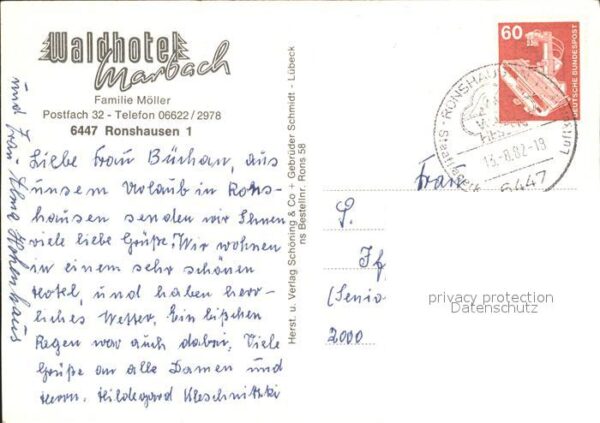 Waldhotel
Marbach
Familie Möller
Postfach 32 - Telefon 06622/2978
6447 Ronshausen 1
Liebe Frau Büchan, aus
unsem Urlaub in Rons-
hausen senden wir Ihnen
viele liebe Grüße. Wir wohnen
in einem sehr schönen
Hotel, und haben herr-
liches Wetter. Ein bißchen
Regen war auch dabei. Viele
Grüße an alle Damen und
Herrn. Hildegard
und Frau Alma Hohenhaus
Herst. u. Verlag Schöning & Co + Gebrüder Schmidt - Lübeck
ns Bestellnr. Rons 58
60
DEUTSCHE BUNDESPOST
RONSHAUSEN
13.-8.82-18
6447
Frau
(Senio
2000
privacy protection
Datenschutz